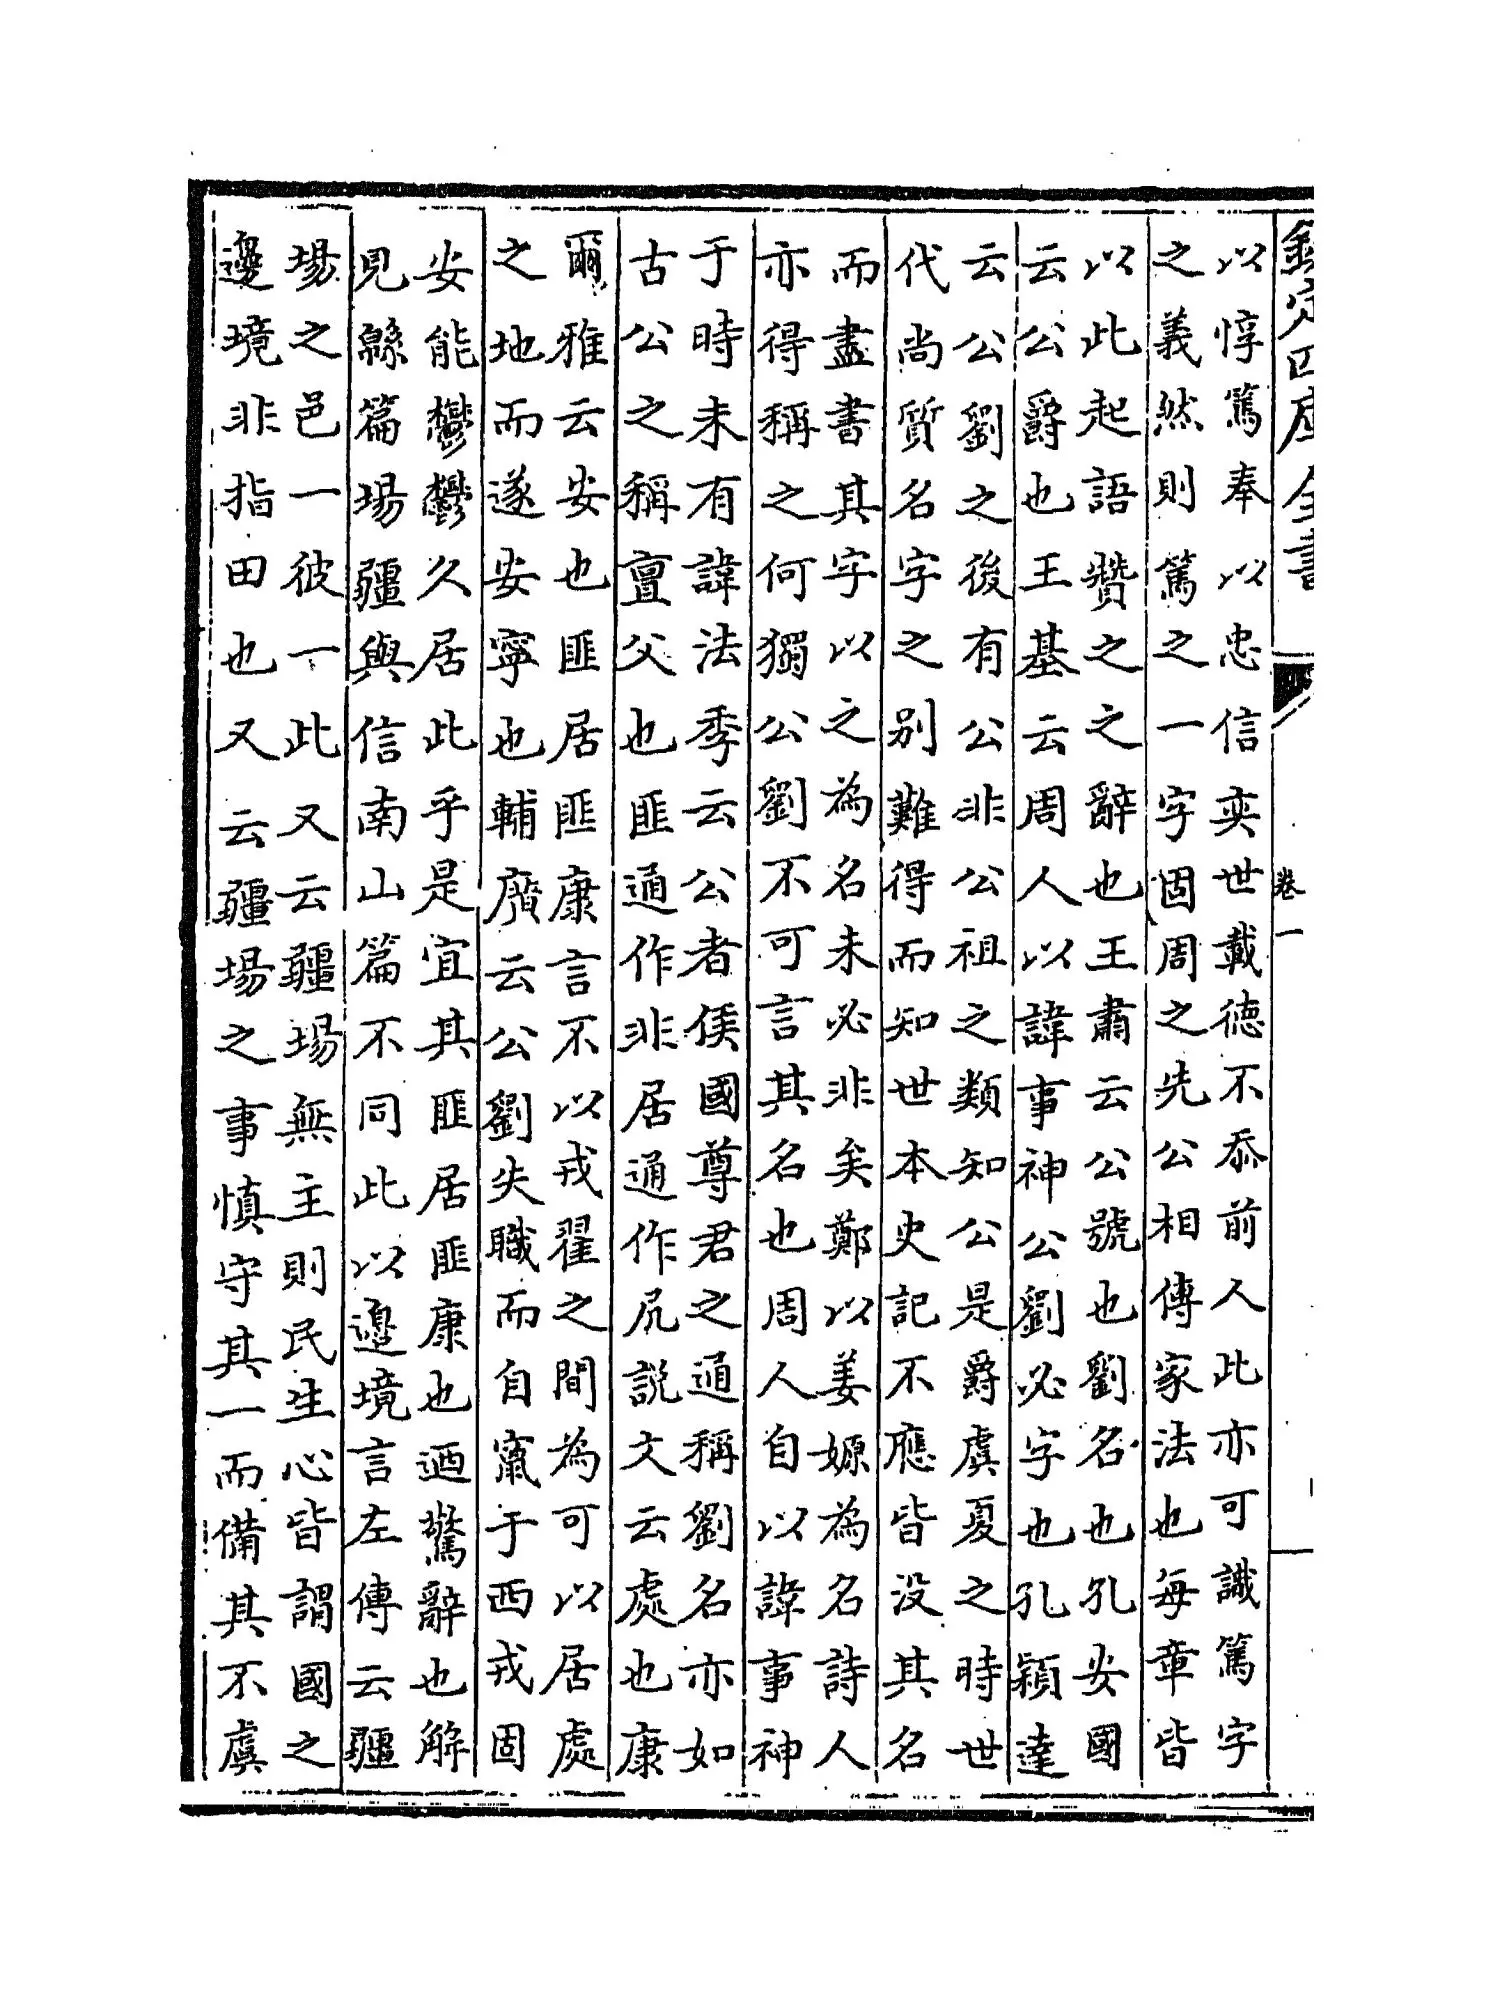 欽定四庫全書
卷一
以惇篤奉以忠信奕世載德不忝前人此亦可識篤字
之義然則篤之一字固周之先公相傳家法也每章皆
以此起語贊之之辭也王肅云公號也劉名也孔安國
云公爵也王基云周人以諱事神公劉必字也孔穎達
云公劉之後有公非公祖之類知公是爵虞夏之時世
代尚質名字之别難得而知世本史記不應皆没其名
而盡書其字以之為名未必非矣鄭以姜嫄為名詩人
亦得稱之何獨公劉不可言其名也周人自以諱事神
于時未有諱法季云公者侯國尊君之通稱劉名亦如
古公之稱亶父也匪通作非居通作凥説文云處也康
爾雅云安也匪居匪康言不以戎翟之間為可以居處
之地而遂安寧也輔廣云公劉失職而自竄于西戎固
安能鬱鬱久居此乎是宜其匪居匪康也迺驚辭也解
見緜篇埸疆與信南山篇不同此以邊境言左傳云疆
埸之邑一彼一此又云疆埸無主則民生心皆謂國之
邊境非指田也又云疆埸之事慎守其一而備其不虞